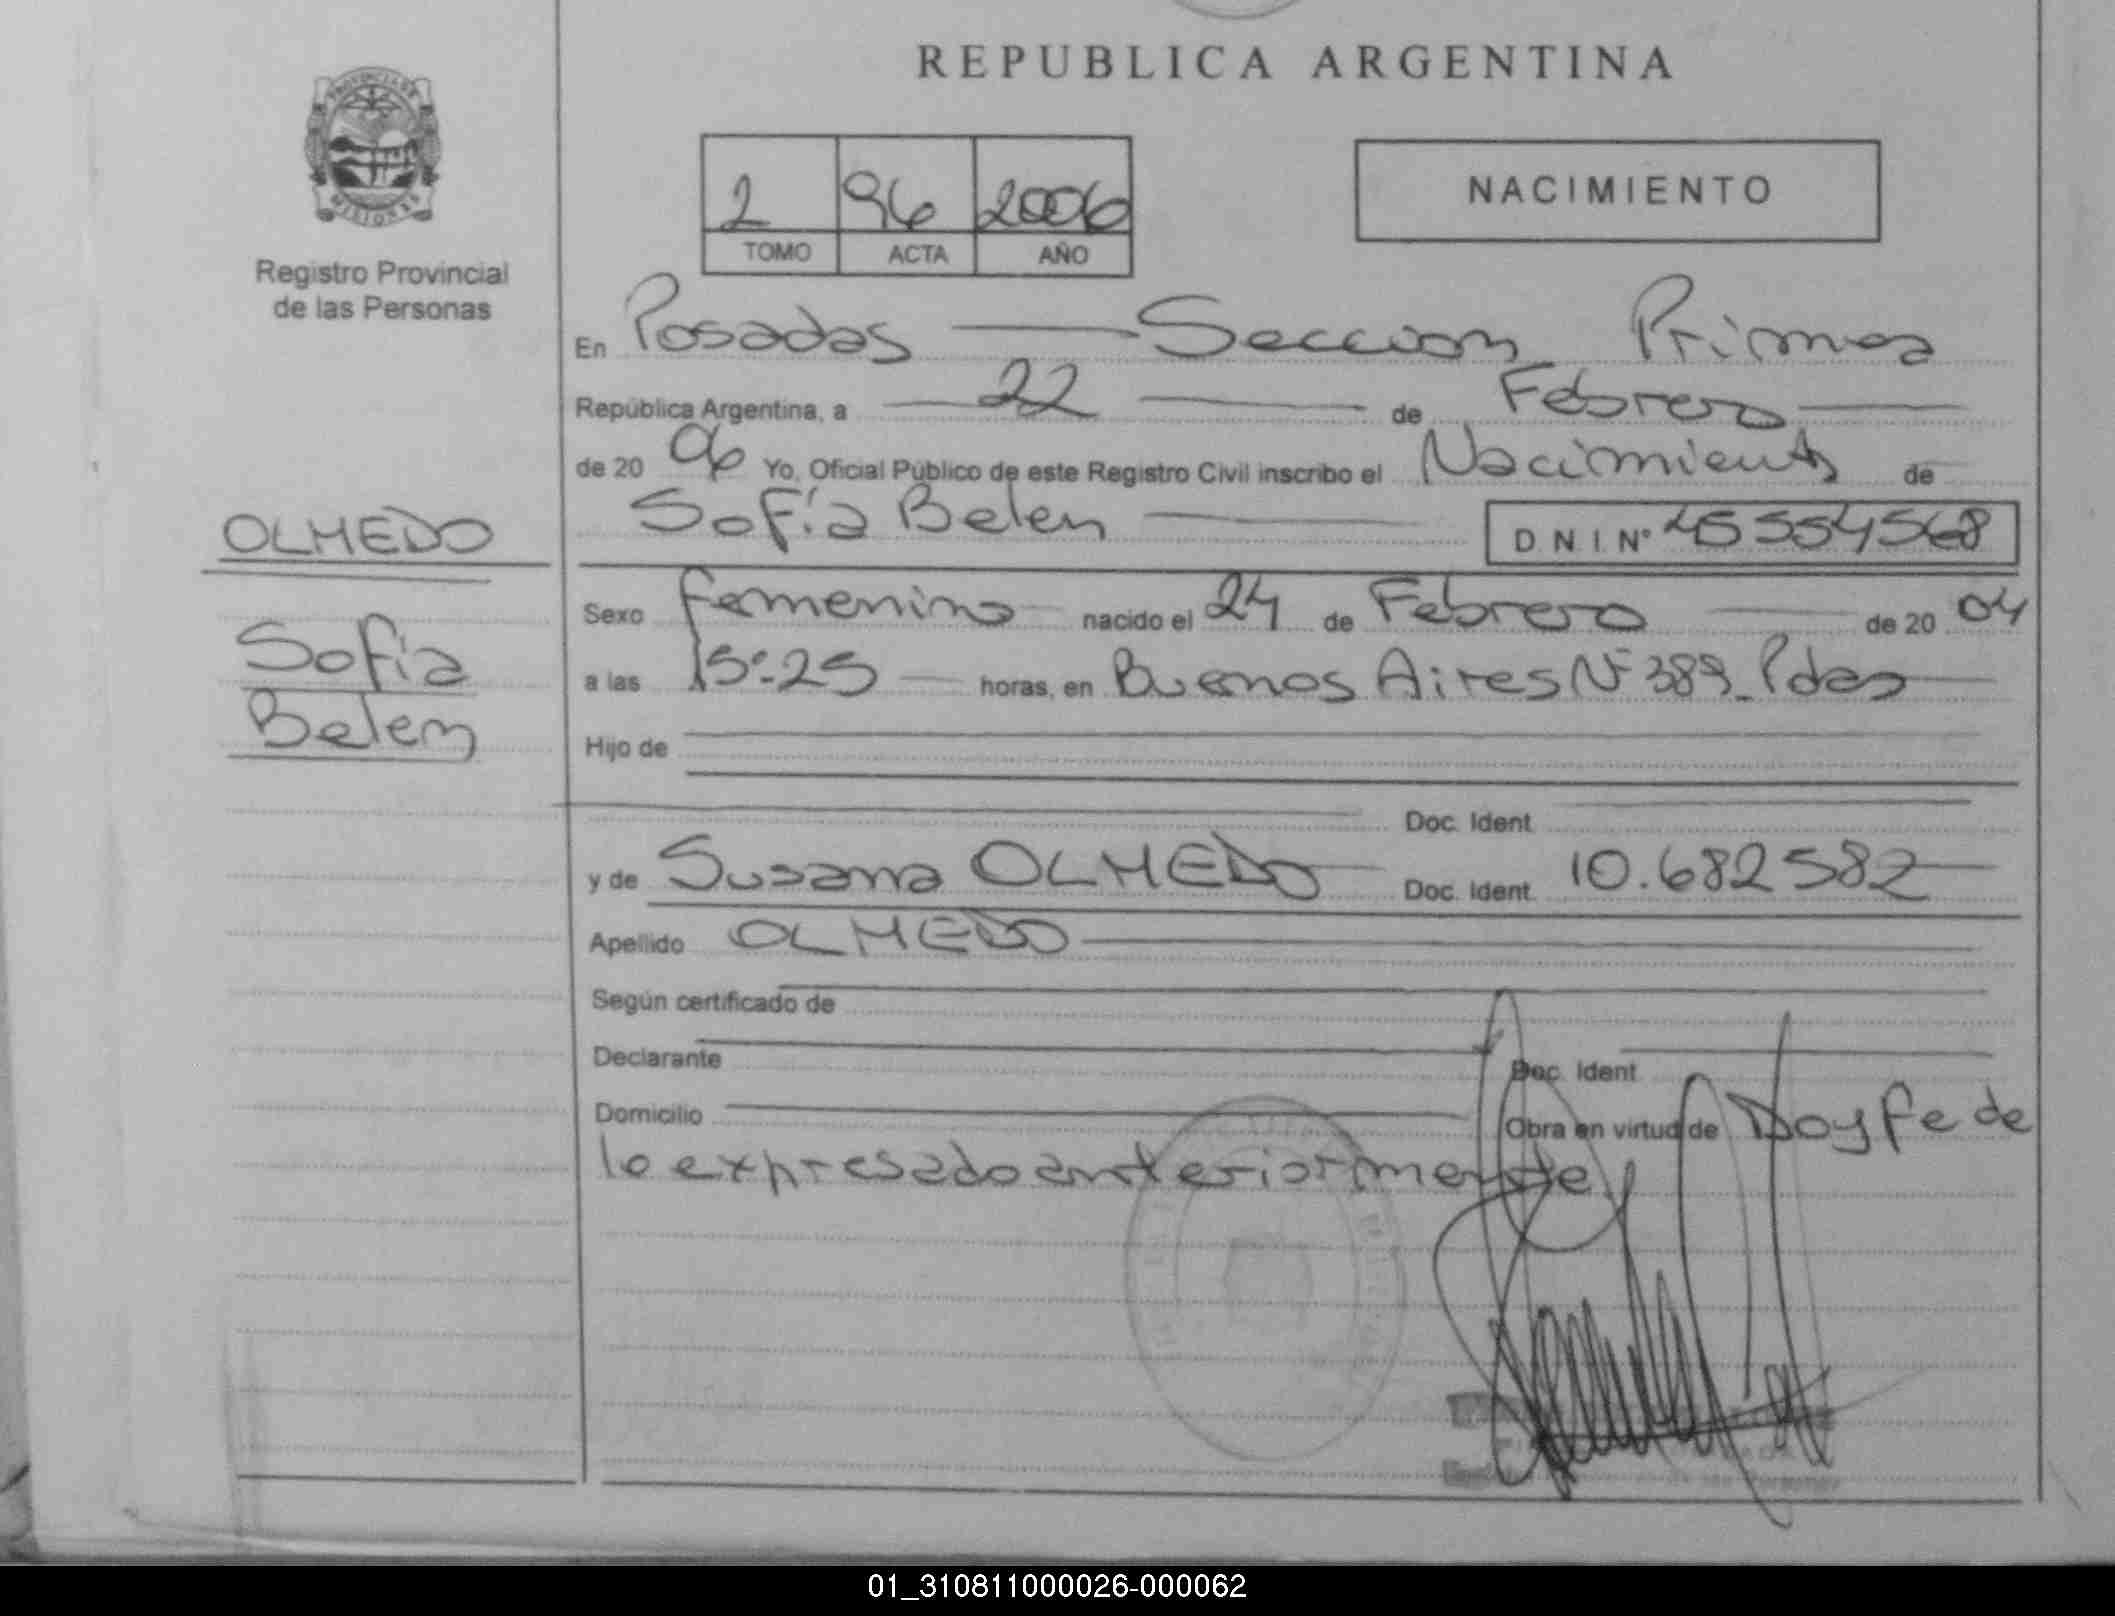 REPUBLICA ARGENTINA
PROVINCIA DE
MISIONES
Registro Provincial
de las Personas
2 96 2006
TOMO ACTA AÑO
NACIMIENTO
En Posadas — Seccion Primera
República Argentina, a — 22 — de Febrero —
de 20 06 Yo, Oficial Público de este Registro Civil inscribo el Nacimiento de
Sofía Belen — D N I. N° 45554568
OLMEDO
Sofía
Belen
Sexo femenino nacido el 24 de Febrero — de 20 04
a las 15:25 — horas, en Buenos Aires N° 389 - Pdas —
Hijo de
Doc. Ident.
y de Susana OLMEDO Doc. Ident. 10.682582
Apellido OLMEDO
Según certificado de
Declarante Doc. Ident.
Domicilio Obra en virtud de Doy fe de
lo expresado anteriormente
01_310811000026-000062